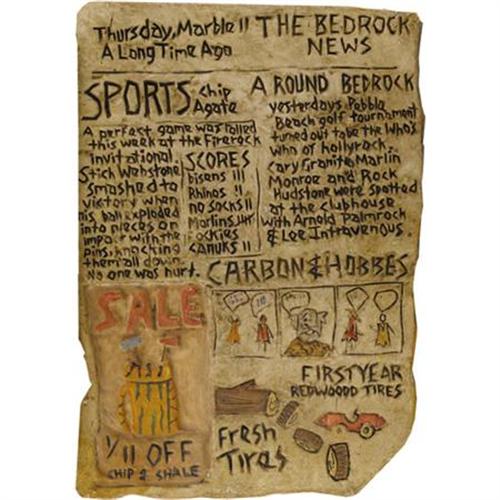 Thursday, Marble II
A Long Time Ago
THE BEDROCK
NEWS
SPORTS, Chip
Agate
A perfect game was rolled
this week at the Firerock
invitational.
Stick Webstone
smashed to
victory when
his ball exploded
into pieces on
impact with the
pins, knocking
them all down.
No one was hurt.
SCORES
bisens III
Rhinos II
no socks II
Marlins
Rockies
Canuks II
A ROUND BEDROCK
yesterdays Pebble
Beach golf tournament
turned out to be the Who's
who of hollyrock.
Cary Granite Marlin
Monroe and Rock
Hudstone were spotted
at the clubhouse
with Arnold Palmrock
& Lee Intravenous.
CARBON & HOBBES
SALE
1/11 OFF
CHIP & SHALE
FIRST YEAR
REDWOOD TIRES
Fresh
Tires